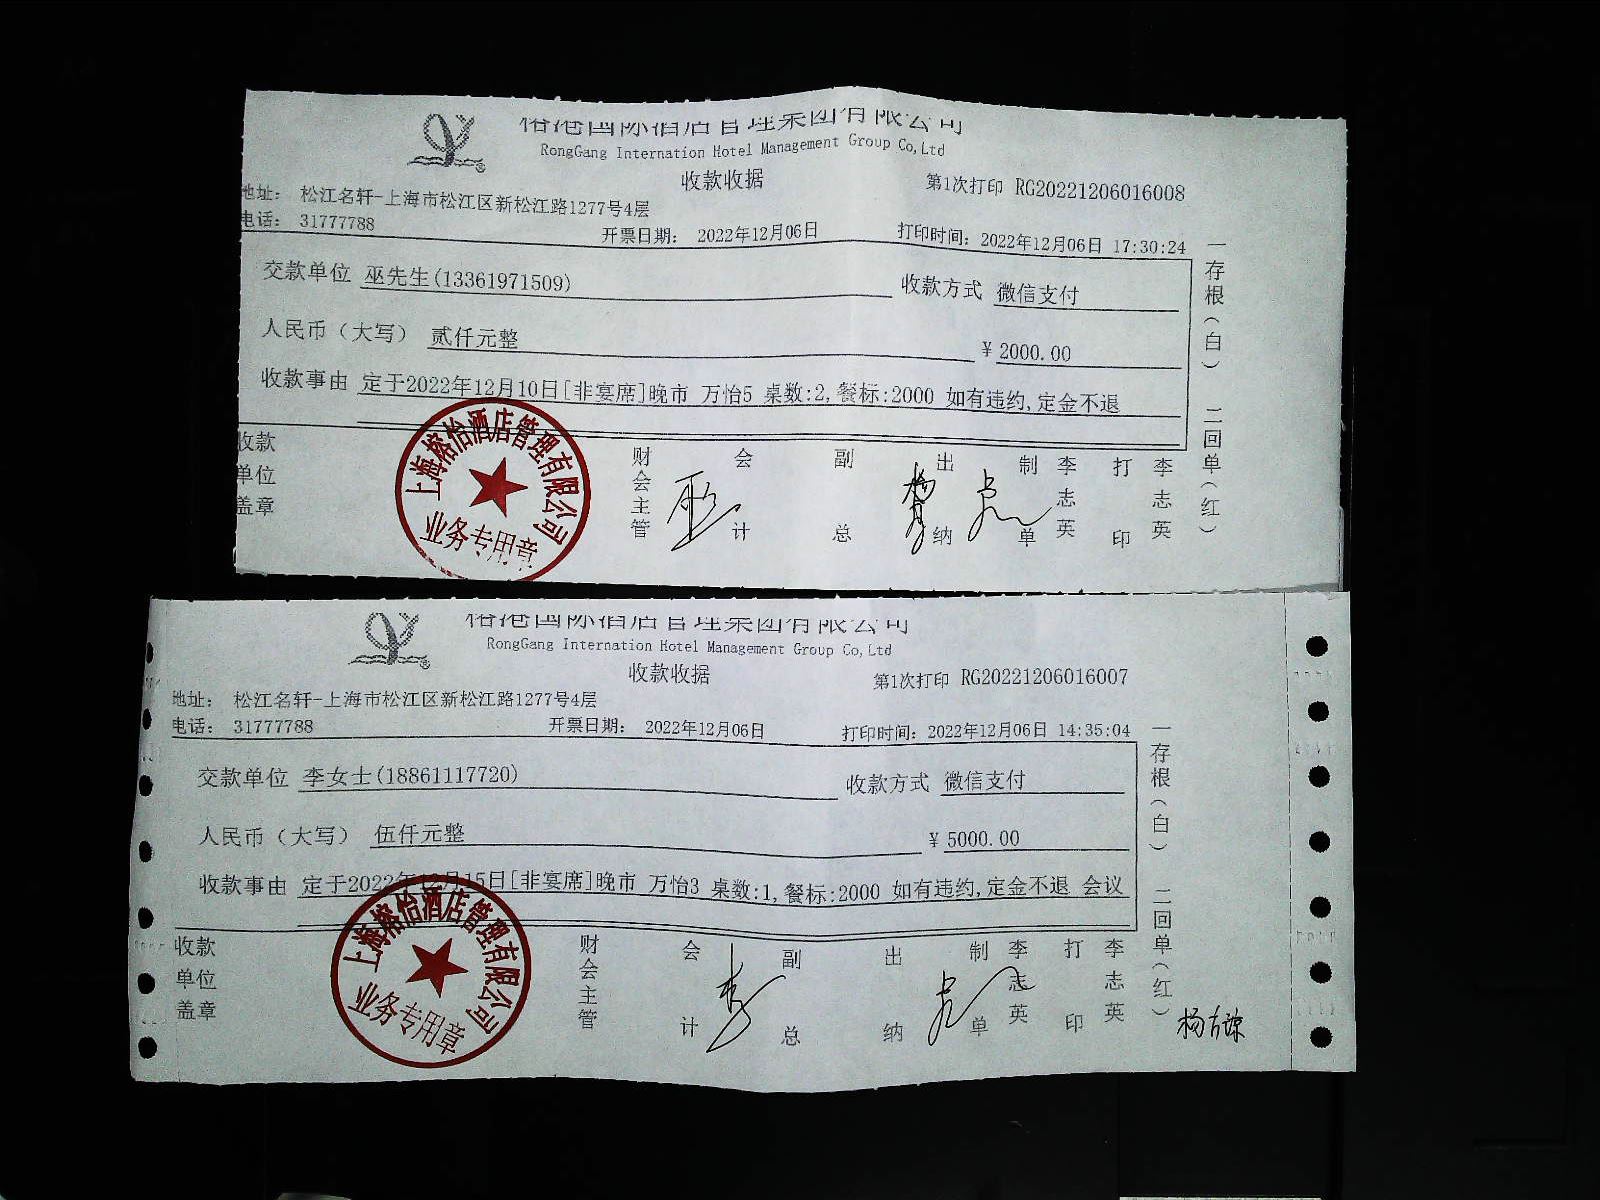 榕港国际酒店管理集团有限公司
RongGang Internation Hotel Management Group Co,Ltd
收款收据
第1次打印 RG20221206016008
地址： 松江名轩-上海市松江区新松江路1277号4层
电话： 31777788
开票日期： 2022年12月06日
打印时间：2022年12月06日 17:30:24
交款单位 巫先生(13361971509)
收款方式 微信支付
人民币（大写） 贰仟元整
￥2000.00
收款事由 定于2022年12月10日[非宴席]晚市 万怡5 桌数:2,餐标:2000 如有违约,定金不退
收款单位盖章
财会主管
会计
副总
出纳
制单 李志英
打印 李志英
一存根（白） 二回单（红）
上海榕怡酒店管理有限公司
业务专用章
榕港国际酒店管理集团有限公司
RongGang Internation Hotel Management Group Co,Ltd
收款收据
第1次打印 RG20221206016007
地址： 松江名轩-上海市松江区新松江路1277号4层
电话： 31777788
开票日期： 2022年12月06日
打印时间：2022年12月06日 14:35:04
交款单位 李女士(18861117720)
收款方式 微信支付
人民币（大写） 伍仟元整
￥5000.00
收款事由 定于2022年12月15日[非宴席]晚市 万怡3 桌数:1,餐标:2000 如有违约,定金不退 会议
收款单位盖章
财会主管
会计
副总
出纳
制单 李志英
打印 李志英
一存根（白） 二回单（红）
上海榕怡酒店管理有限公司
业务专用章